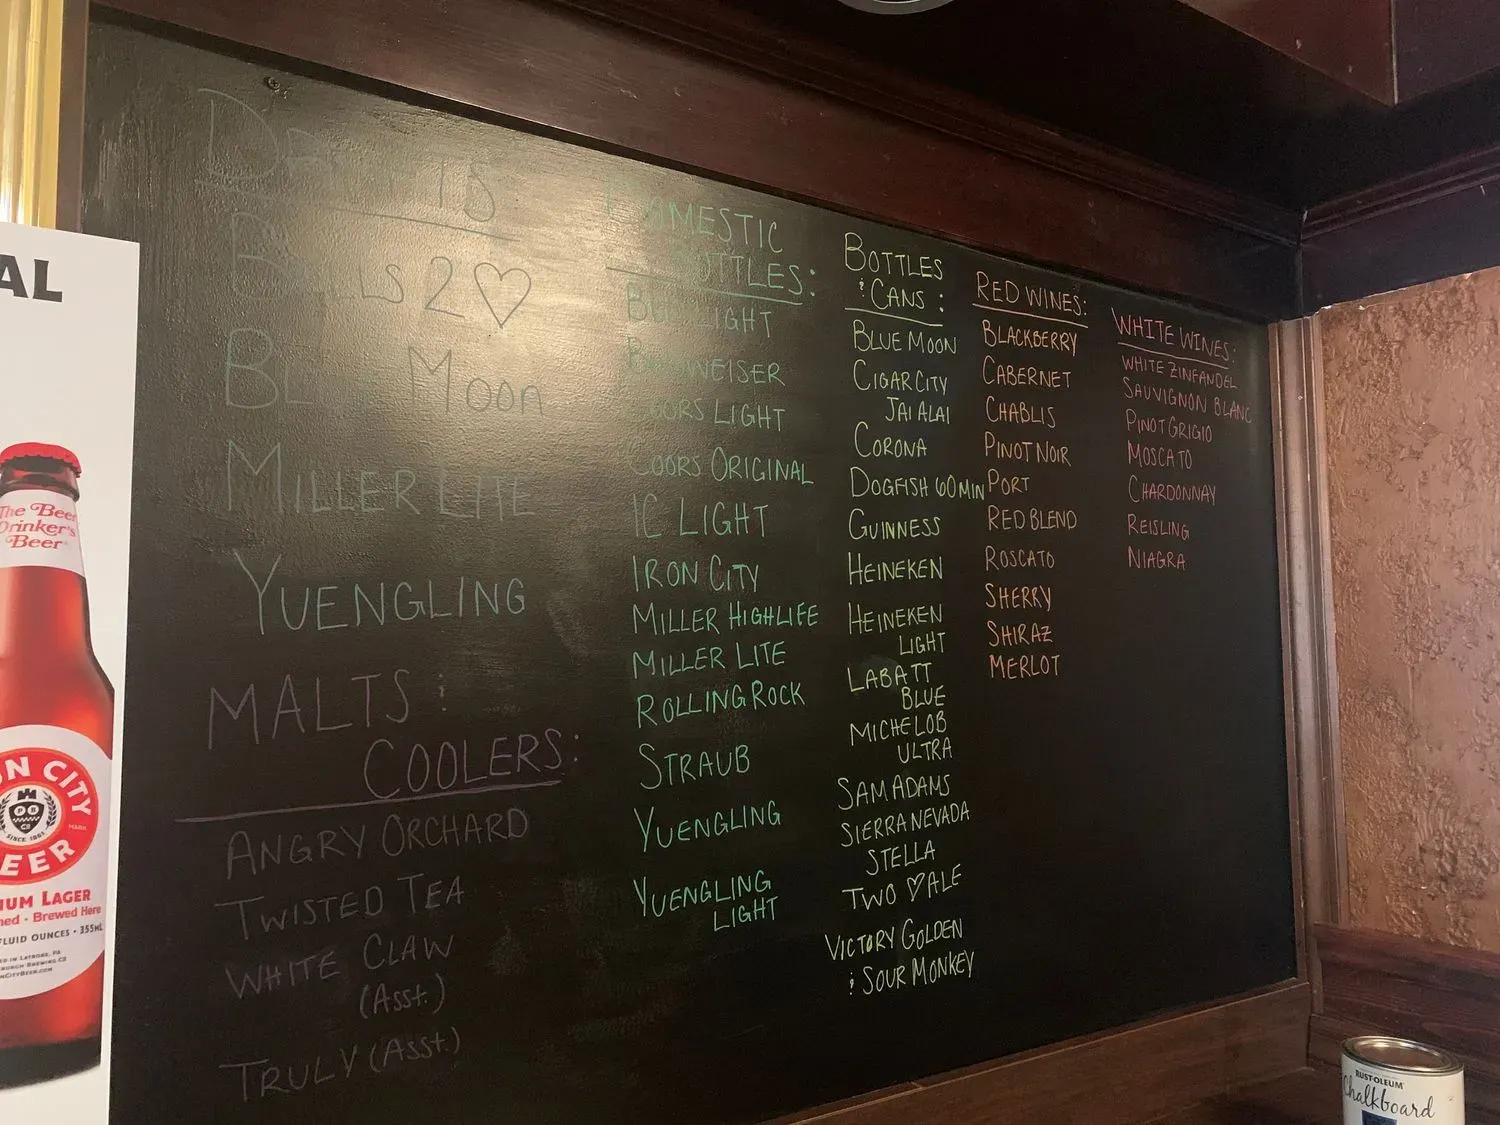 DRAFTS
BELLS 2 ♡
BLUE MOON
MILLER LITE
YUENGLING
MALTS :
COOLERS:
ANGRY ORCHARD
TWISTED TEA
WHITE CLAW
(Asst.)
TRULY (Asst.)
DOMESTIC
BOTTLES:
BUD LIGHT
BUDWEISER
COORS LIGHT
COORS ORIGINAL
IC LIGHT
IRON CITY
MILLER HIGHLIFE
MILLER LITE
ROLLING ROCK
STRAUB
YUENGLING
YUENGLING
LIGHT
BOTTLES
& CANS :
BLUE MOON
CIGAR CITY
JAI ALAI
CORONA
DOGFISH 60 MIN
GUINNESS
HEINEKEN
HEINEKEN
LIGHT
LABATT
BLUE
MICHELOB
ULTRA
SAM ADAMS
SIERRA NEVADA
STELLA
TWO ♡ ALE
VICTORY GOLDEN
& SOUR MONKEY
RED WINES:
BLACKBERRY
CABERNET
CHABLIS
PINOT NOIR
PORT
RED BLEND
ROSCATO
SHERRY
SHIRAZ
MERLOT
WHITE WINES:
WHITE ZINFANDEL
SAUVIGNON BLANC
PINOT GRIGIO
MOSCATO
CHARDONNAY
REISLING
NIAGRA
AL
The Beer
Drinker's
Beer
ON CITY
SINCE 1861
MARK
EER
IUM LAGER
ned • Brewed Here
FLUID OUNCES • 355mL
RUST-OLEUM
Chalkboard